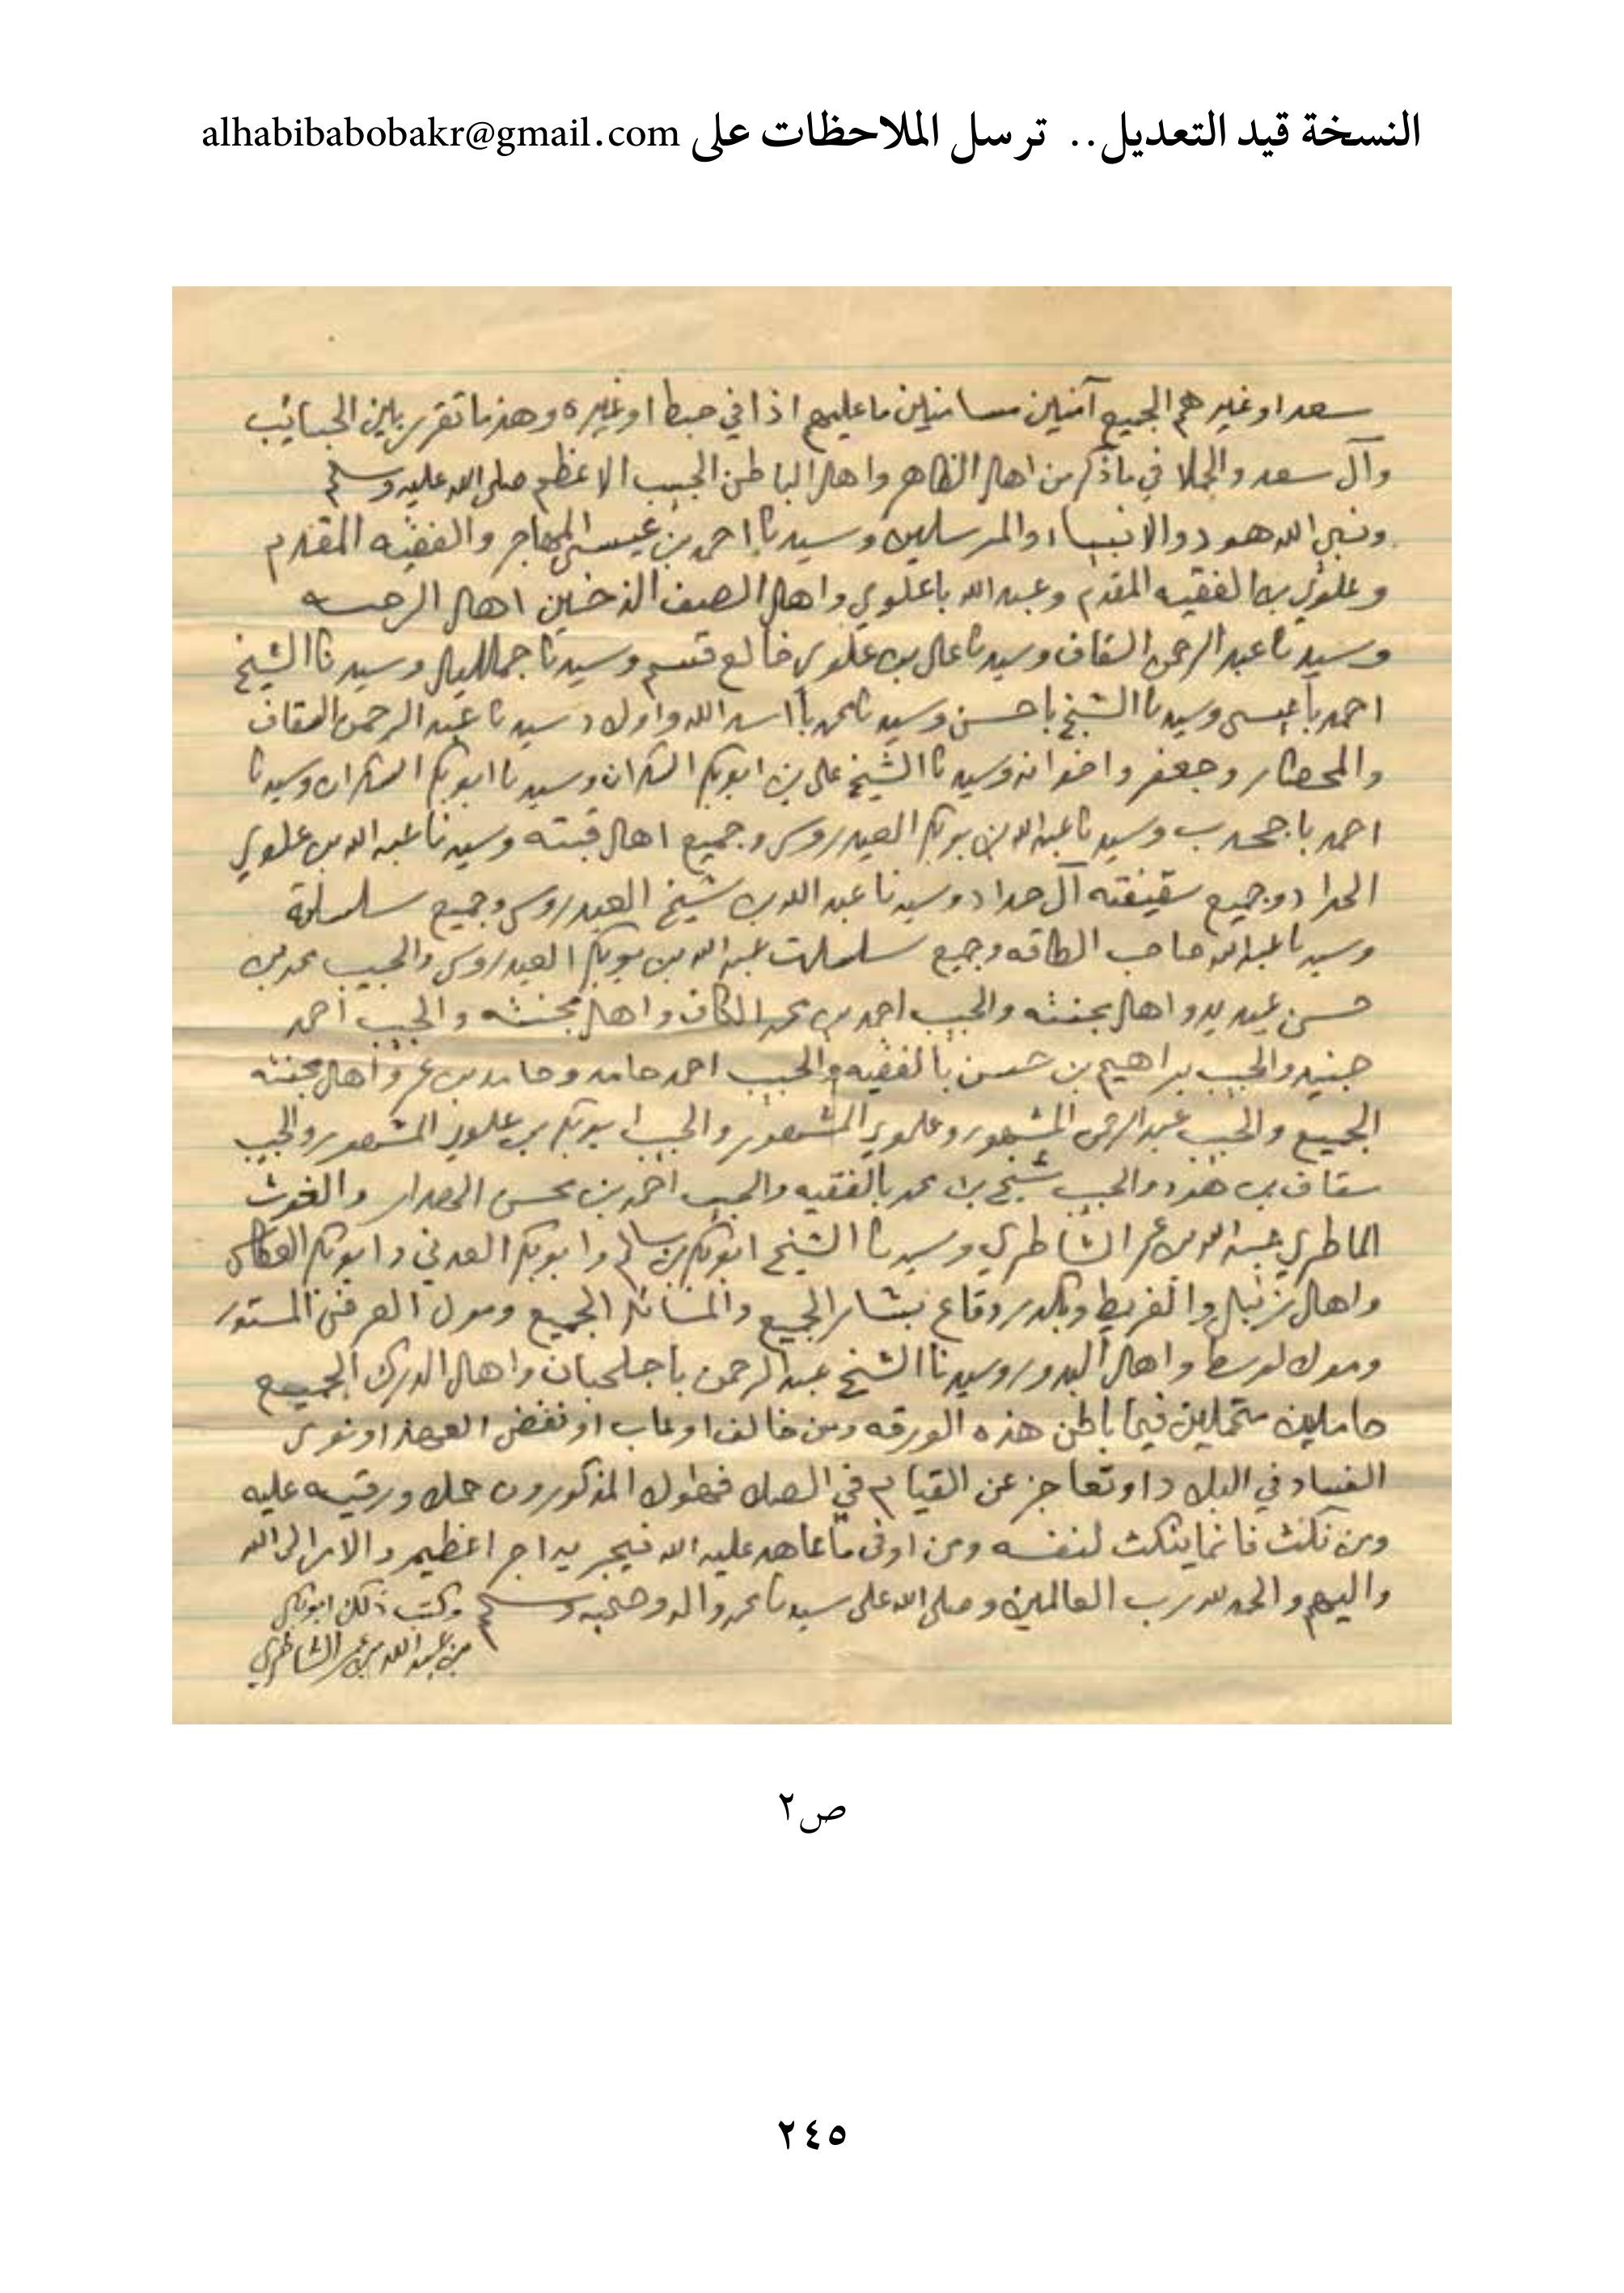 النسخة قيد التعديل.. ترسل الملاحظات على alhabibabobakr@gmail.com
سعد او غيرهم الجميع آمنين مسامنين ما عليهم اذا في حبط او غيره وهذ ما تقرر بين الحبايب
وآل سعد والجملا في ما ذكر من اهل الظاهر واهل الباطن الحبيب الاعظم صلى الله عليه وسلم
ونبي الله هود والانبياء والمرسلين وسيدنا احمد بن عيسى المهاجر والفقيه المقدم
وعلوي بن الفقيه المقدم وعبد الله باعلوي واهل الصيف اهل الرحمه
وسيدنا عبد الرحمن السقاف وسيدنا علي بن علوي خالع قسم وسيدنا جمل الليل وسيدنا الشيخ
احمد باعيسى وسيدنا الشيخ باحسن وسيدنا محمد با اسد الله واولاد سيدنا عبد الرحمن السقاف
والمحضار وجعفر واخوانه وسيدنا الشيخ علي بن ابوبكر السكران وسيدنا ابوبكر السكران وسيدنا
احمد باجحدب وسيدنا عبد الله بن بوبكر العيدروس وجميع اهل قبته وسيدنا عبد الله بن علوي
الحداد وجميع سقيفته آل حداد وسيدنا عبد الله بن شيخ العيدروس وجميع سلسلة
وسيدنا عبد الله صاحب الطاقه وجميع سلسلت عبد الله بن بوبكر العيدروس والحبيب محمد بن
حسن عيديد واهل بجنته والحبيب احمد بن محمد الكاف واهل بجنته والحبيب احمد
جنيد والحبيب براهيم بن حسن بالفقيه والحبيب احمد حامد وحامد بن عمر واهل بجنته
الجميع والحبيب عبد الرحمن المشهور وعلوي المشهور والحبيب ابوبكر بن علوي المشهور والحبيب
سقاف بن هود والحبيب شيخ بن محمد بالفقيه والحبيب احمد بن محسن الهدار والغوث
الماطري عبد الله بن عمر الشاطري وسيدنا الشيخ ابوبكر بن سالم وابوبكر العدني وابوبكر
واهل زنبل والفريط وبكدر وقاع بشار الجميع والمشائخ الجميع ومول العرض المستور
ومول لوسط واهل البدور وسيدنا الشيخ عبد الرحمن باجلحبان واهل الدرك الجميع
حاملين متحملين فيما باطن هذه الورقه ومن خالف او عاب او نقض العهد او نوى
الفساد في البلاد او تعاجز عن القيام في الصلح المذكورون حمله ورقبه عليه
ومن نكث فانما ينكث لنفسه ومن اوفى ما عاهد عليه الله فيجر يد اجر اعظيم والامر الى الله
واليهم والحمد لله رب العالمين وصلى الله على سيدنا محمد واله وصحبه وسلم وكتب ذلك ابوبكر
بن عبد الله بن عمر الشاطري
ص٢
٢٤٥